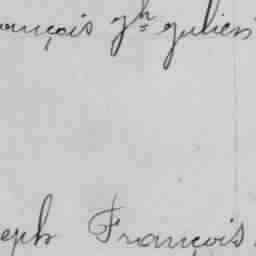 ançois Jh Julien
eph François